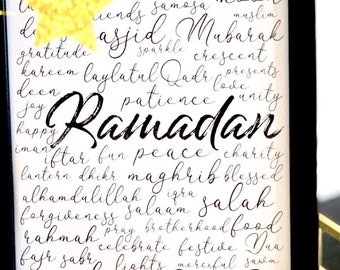 friends samosa
muslim
masjid Mubarak
gratitude sparkle crescent
kareem laylatul Qadr presents
deen love
joy patience unity
Ramadan
happy
iman iftar fun peace charity
lantern dhikr maghrib blessed
alhamdulillah iqra
forgiveness salaam salah
rahmah pray brotherhood food
celebrate festive Dua
fajr sabr lights merciful sawm